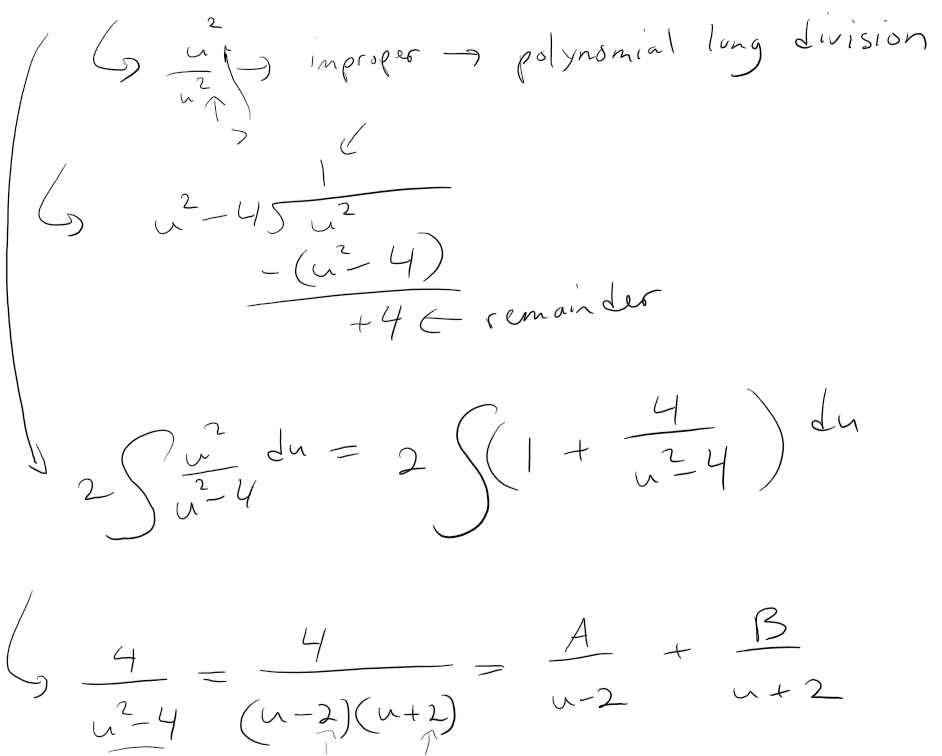 u²/u² → improper → polynomial long division
1
u²-4 u²
-(u²-4)
+4 ← remainder
2∫ u²/(u²-4) du = 2∫(1 + 4/(u²-4)) du
4/(u²-4) = 4/((u-2)(u+2)) = A/(u-2) + B/(u+2)